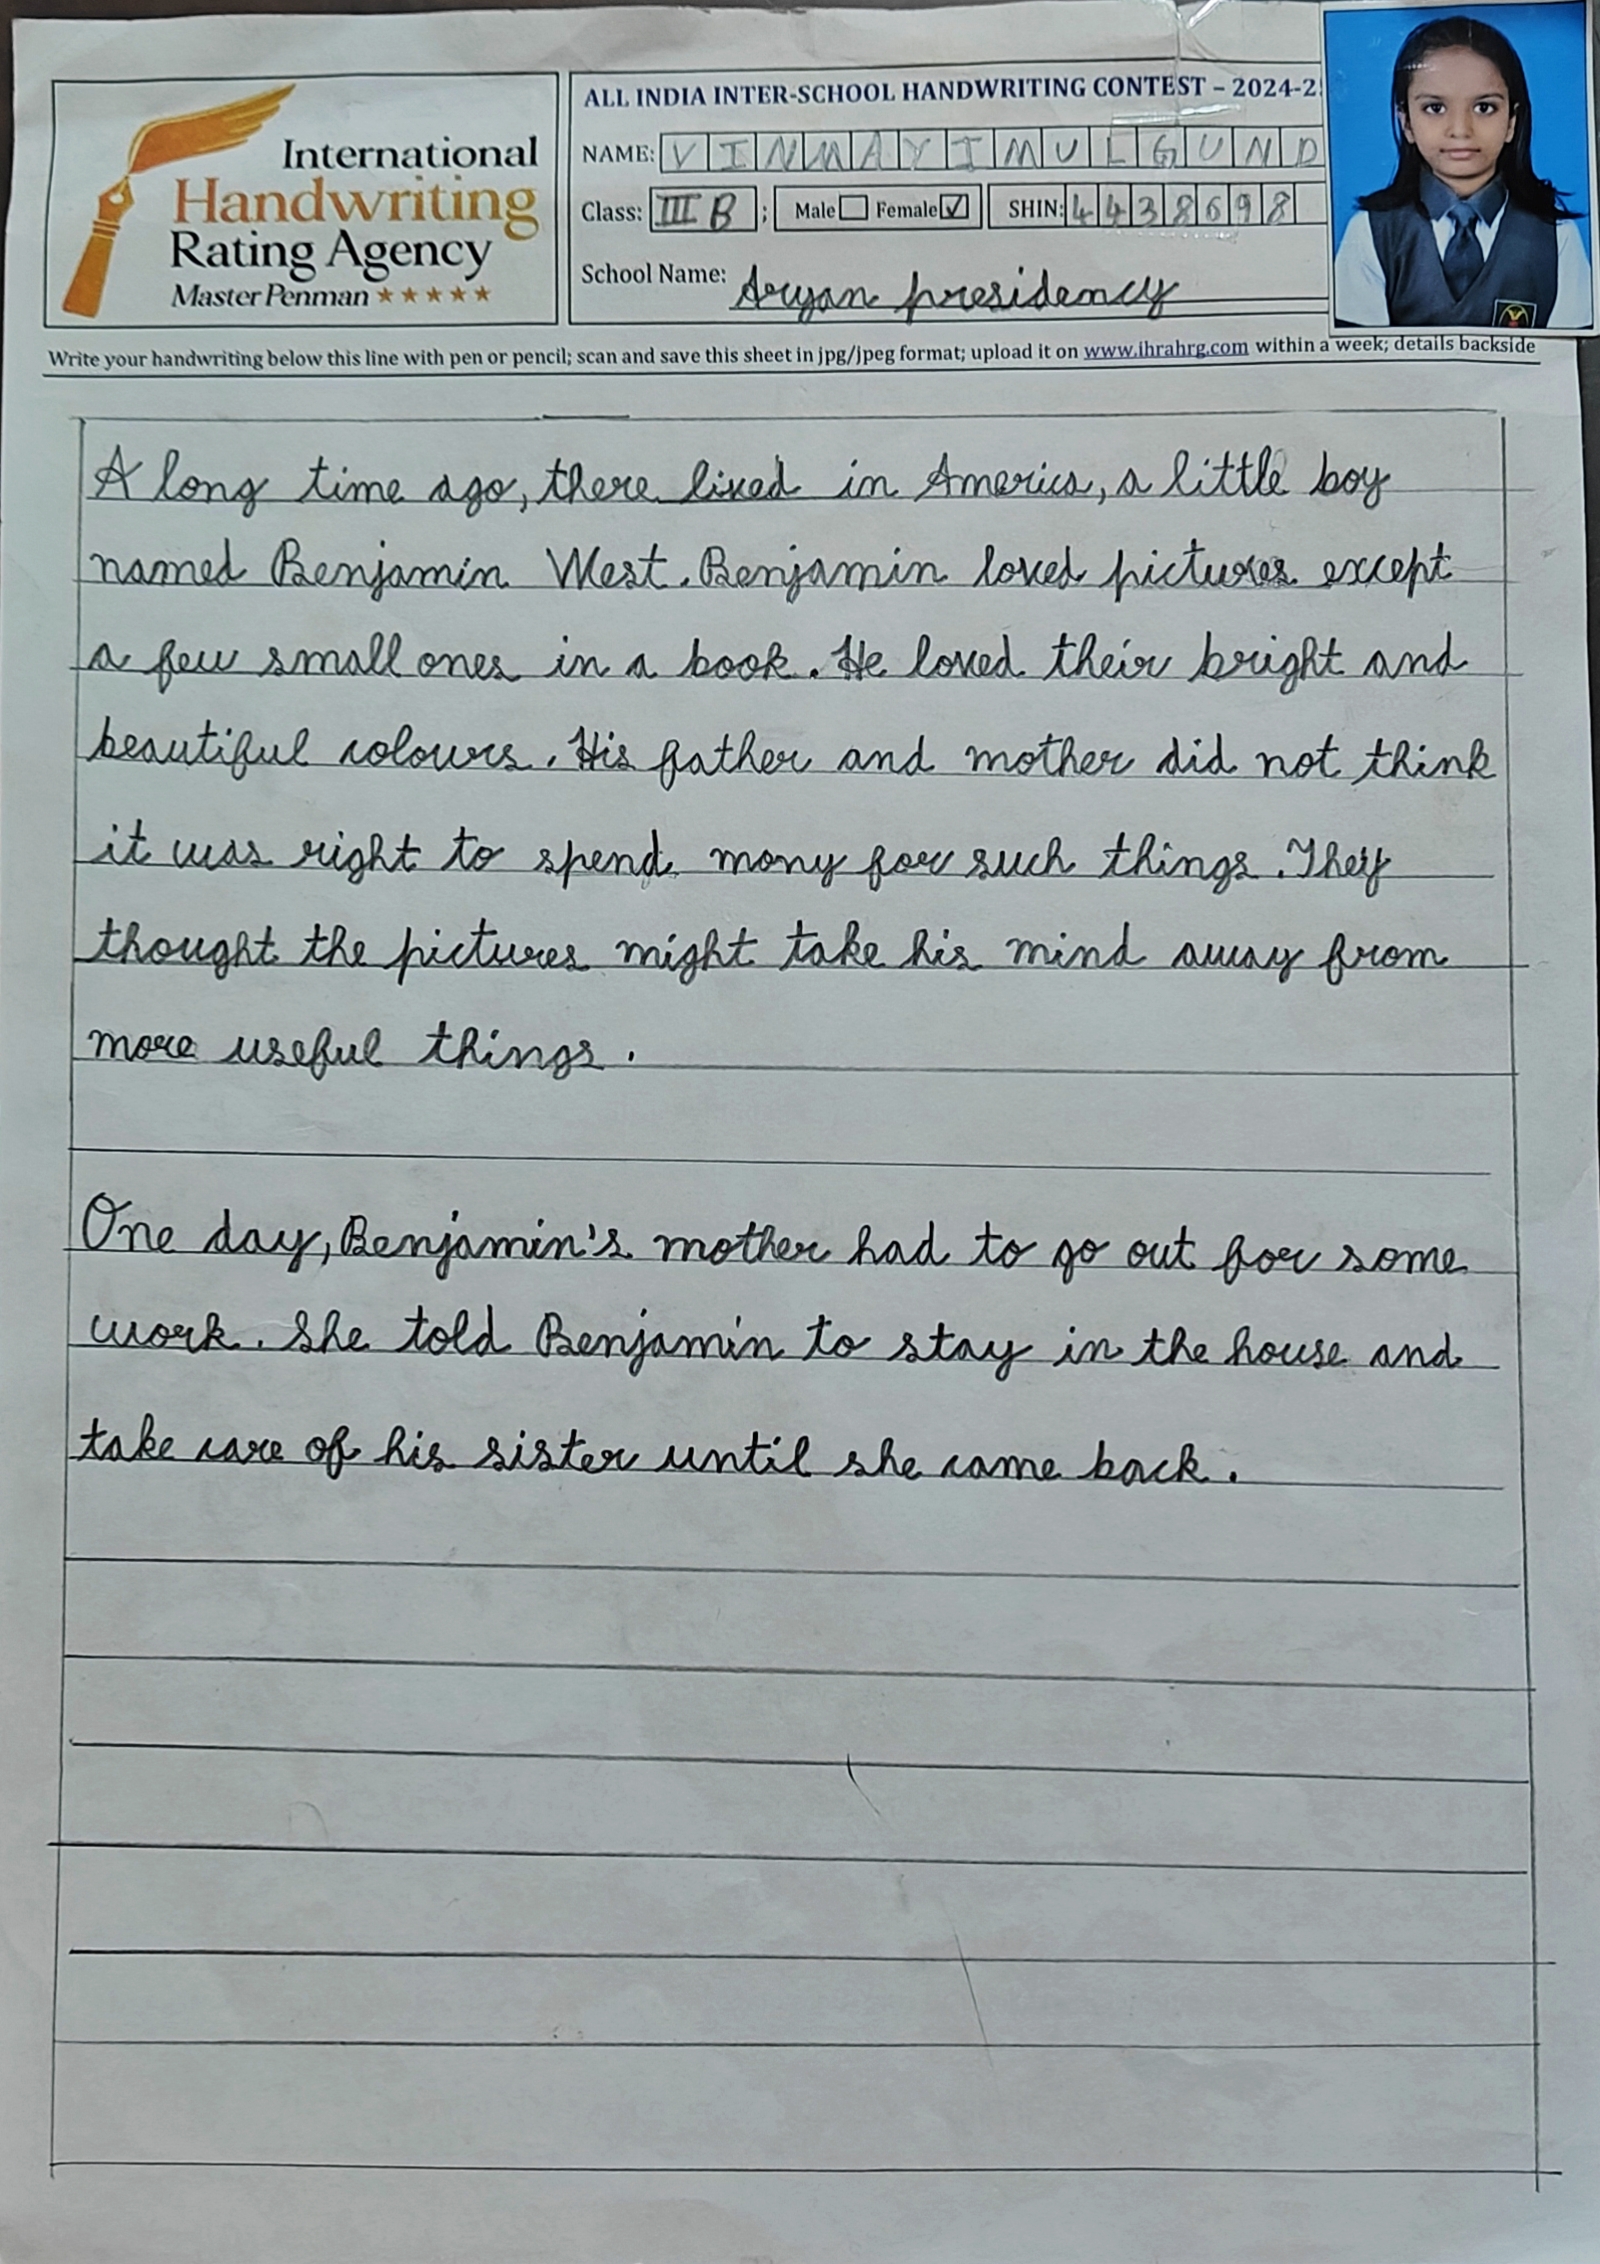 International
Handwriting
Rating Agency
Master Penman ★★★★★
ALL INDIA INTER-SCHOOL HANDWRITING CONTEST – 2024-2
NAME: VINMAYI MULGUND
Class: III B ; Male Female ✓ SHIN: 4438698
School Name: Aryan presidency
Write your handwriting below this line with pen or pencil; scan and save this sheet in jpg/jpeg format; upload it on www.ihrahrg.com within a week; details backside
A long time ago, there lived in America, a little boy
named Benjamin West. Benjamin loved pictures except
a few small ones in a book. He loved their bright and
beautiful colours. His father and mother did not think
it was right to spend mony for such things. They
thought the pictures might take his mind away from
more useful things.
One day, Benjamin's mother had to go out for some
work. She told Benjamin to stay in the house and
take care of his sister until she came back.